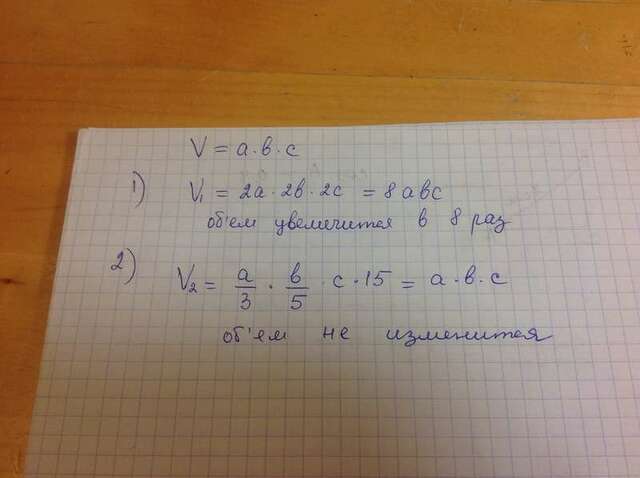 V = a·в·c
1) V₁ = 2a·2в·2c = 8aвc
об'ем увеличится в 8 раз
2) V₂ = a/3 · в/5 · c·15 = a·в·c
об'ем не изменится